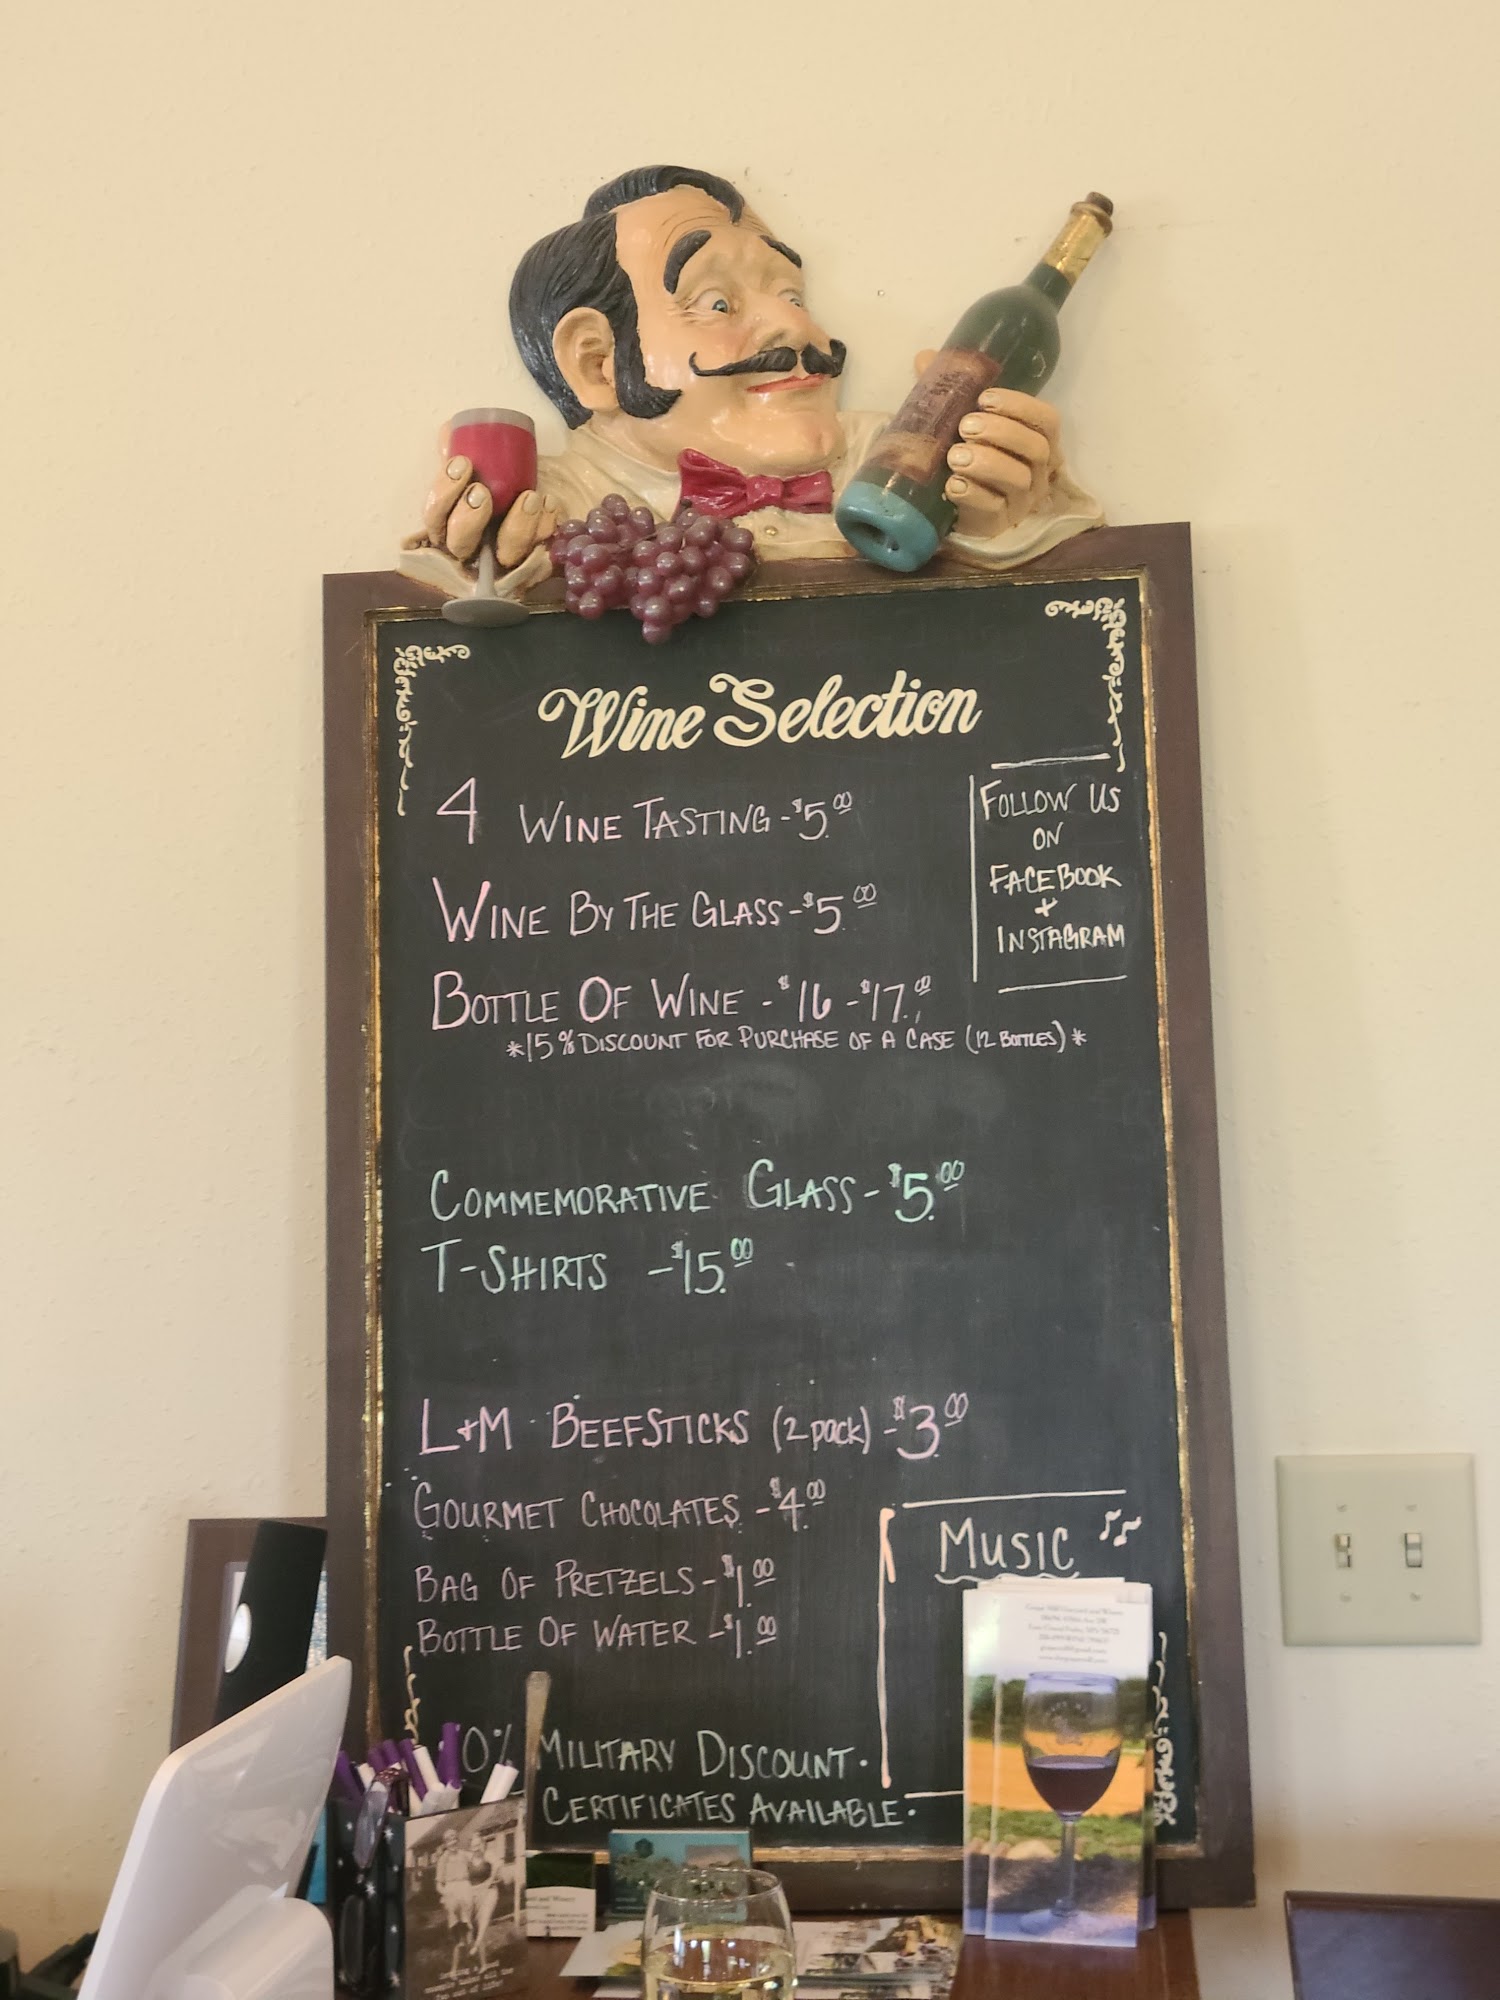 Wine Selection
4 WINE TASTING - $5.00
WINE BY THE GLASS - $5.00
BOTTLE OF WINE - $16 - $17.00
*15% DISCOUNT FOR PURCHASE OF A CASE (12 BOTTLES)*
FOLLOW US
ON
FACEBOOK
+
INSTAGRAM
COMMEMORATIVE GLASS - $5.00
T-SHIRTS - $15.00
L+M BEEFSTICKS (2 pack) - $3.00
GOURMET CHOCOLATES - $4.00
BAG OF PRETZELS - $1.00
BOTTLE OF WATER - $1.00
MUSIC
0% MILITARY DISCOUNT.
CERTIFICATES AVAILABLE.
and Winery